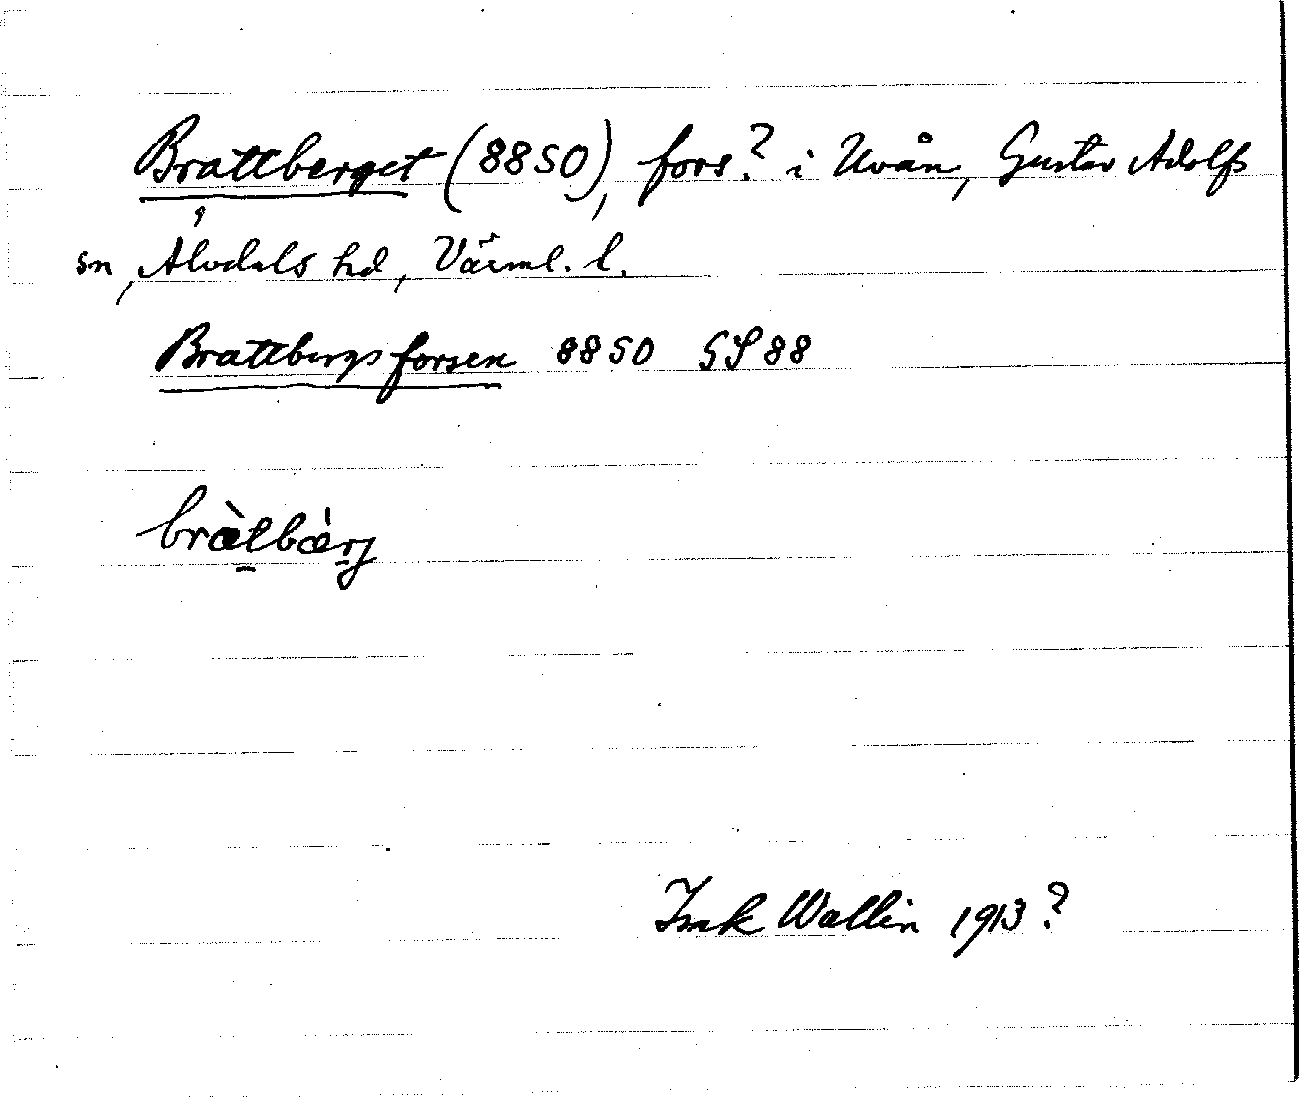 Brattberget (8850), fors? i Uvån, Gustav Adolfs
sn, Älvdals hd, Värml. l.
Brattbergsforsen 8850 GS 88
bràtbàrj
Isak Wallin 1913?